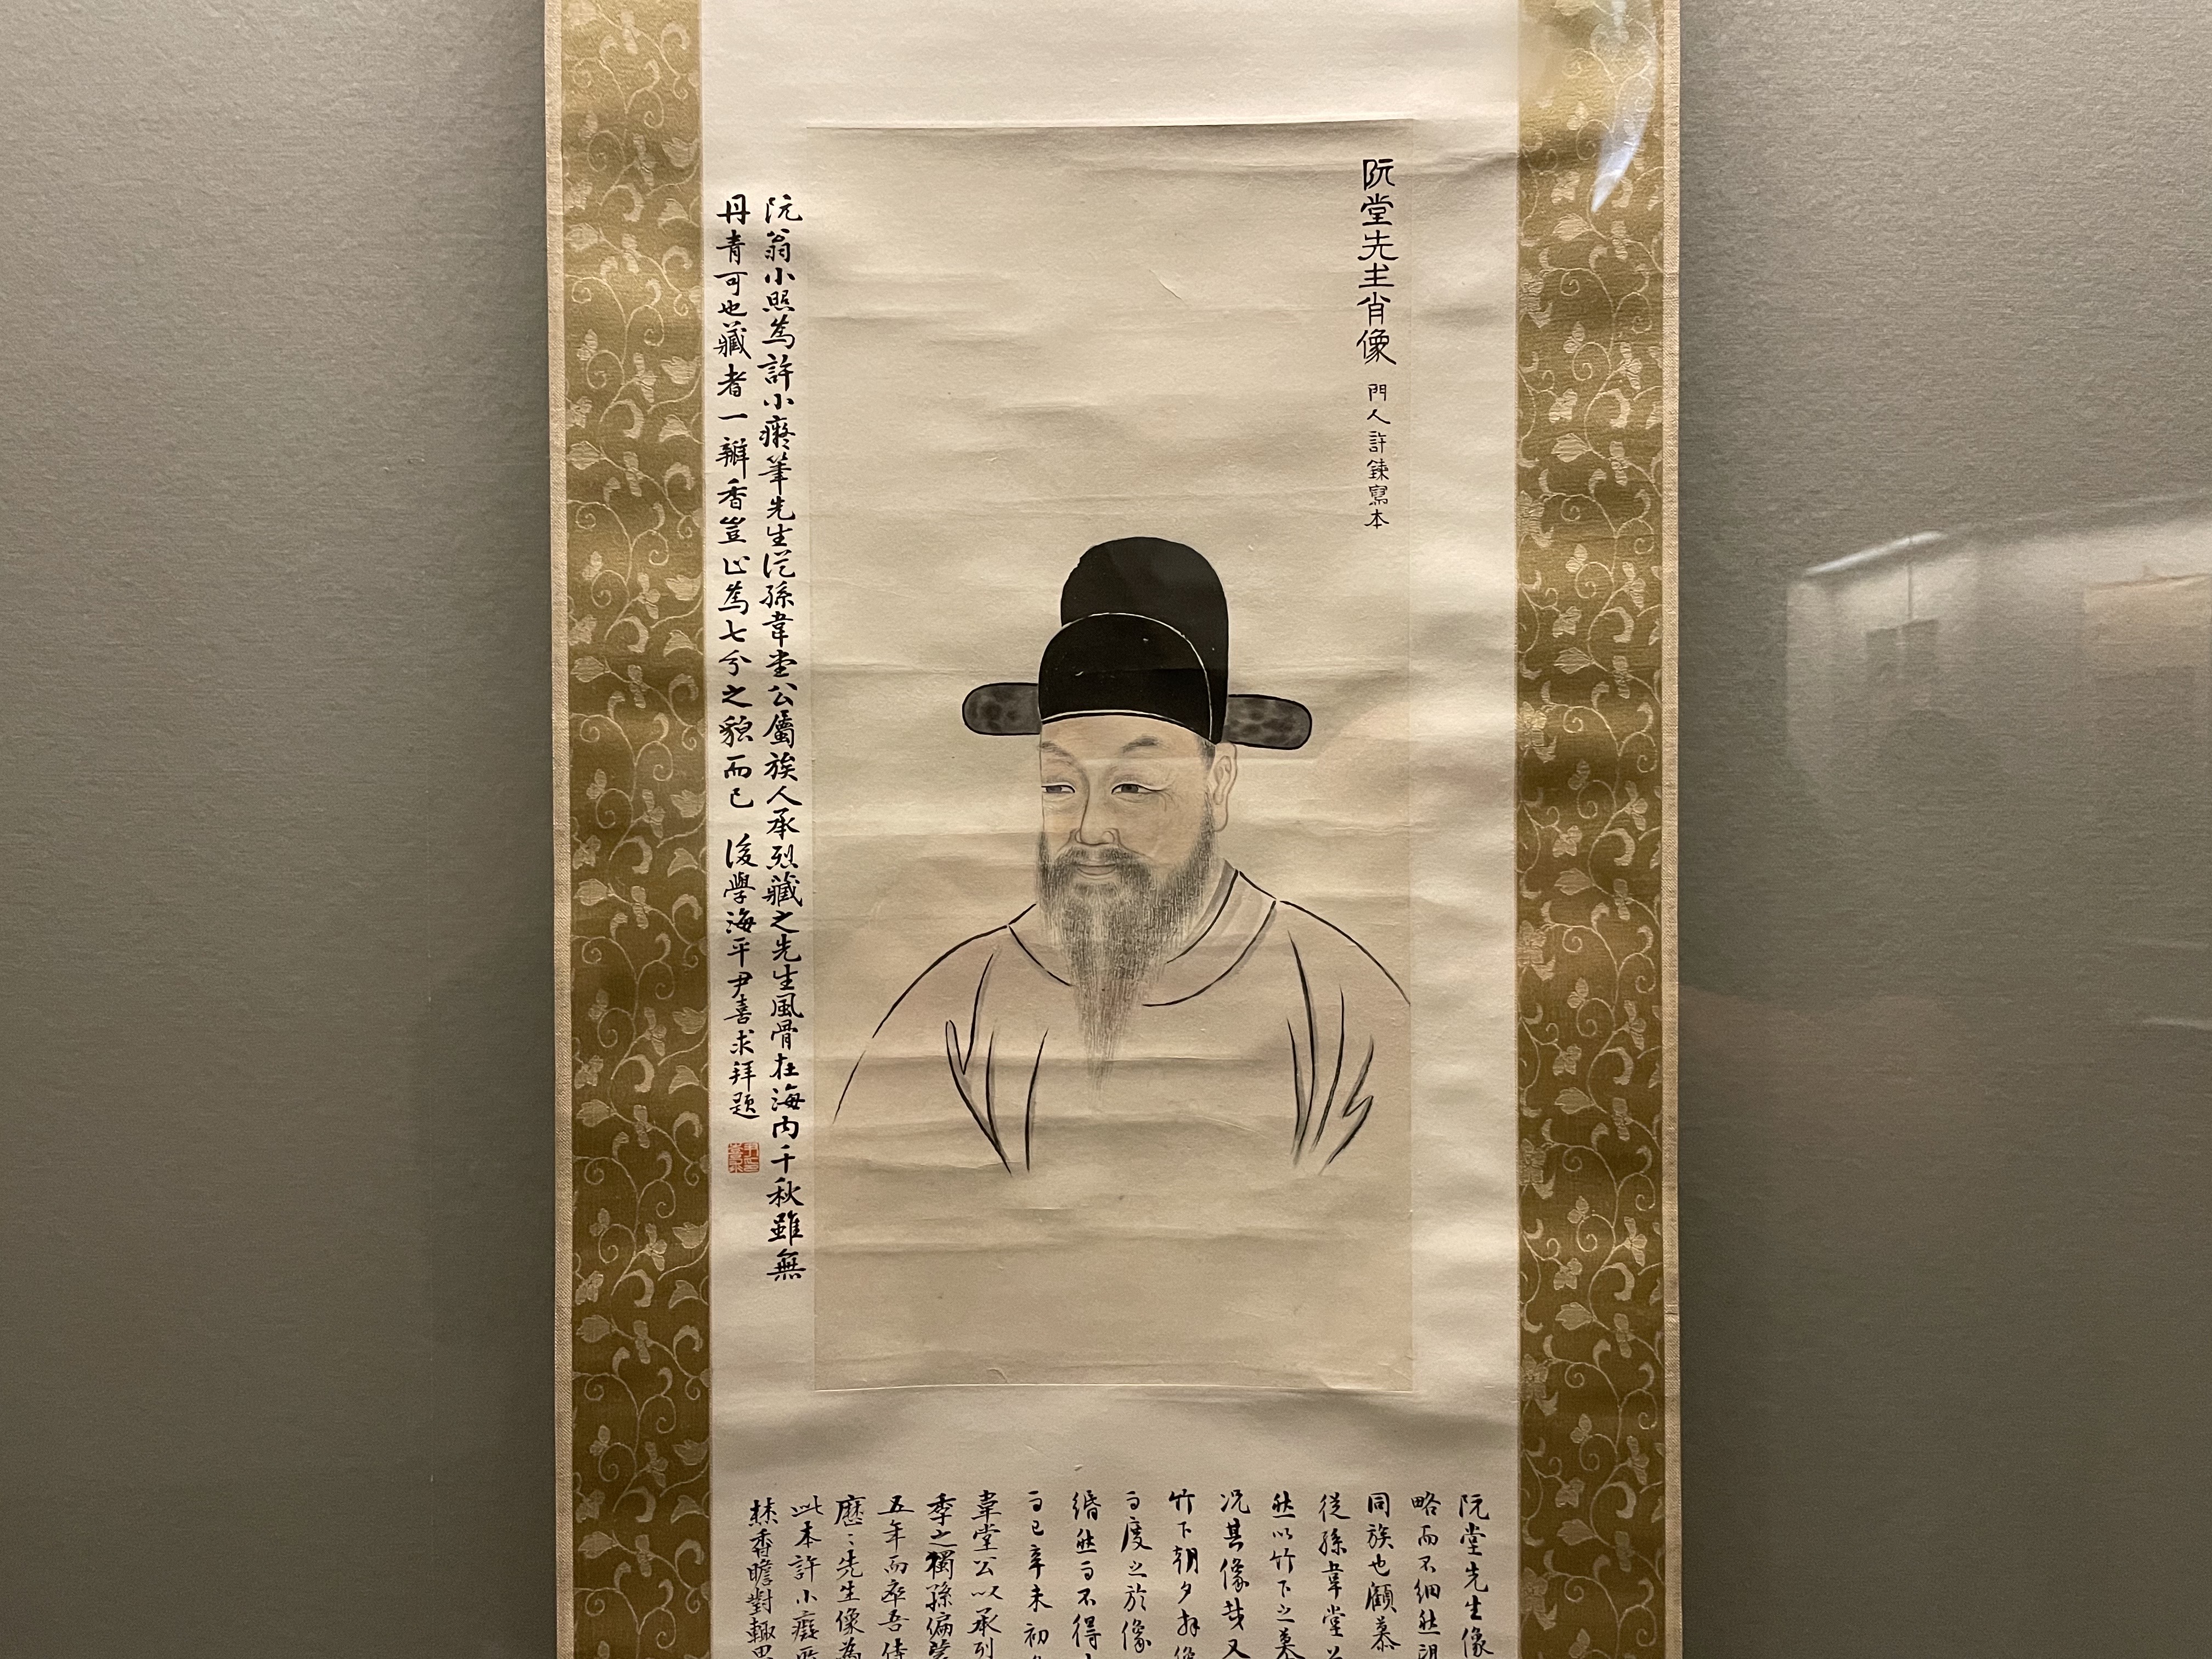 阮堂先生肖像 門人許鍊寫本
阮翁小照為許小癡筆先生從孫韋堂公屬族人承烈藏之先生風骨在海內千秋雖無
丹青可也藏者一瓣香豈止為七分之貌而已 後學海平尹喜求拜題
阮堂先生像
略而不細然
同族也顧慕
從孫韋堂
然以竹下之
況其像哉又
竹下朝夕拜
而度之於像
緡然而不得
而已辛未初
韋堂公以承列
季之獨孫偏
五年而卒吾侍
歷〻先生像為
此本許小癡
香瞻對輒思